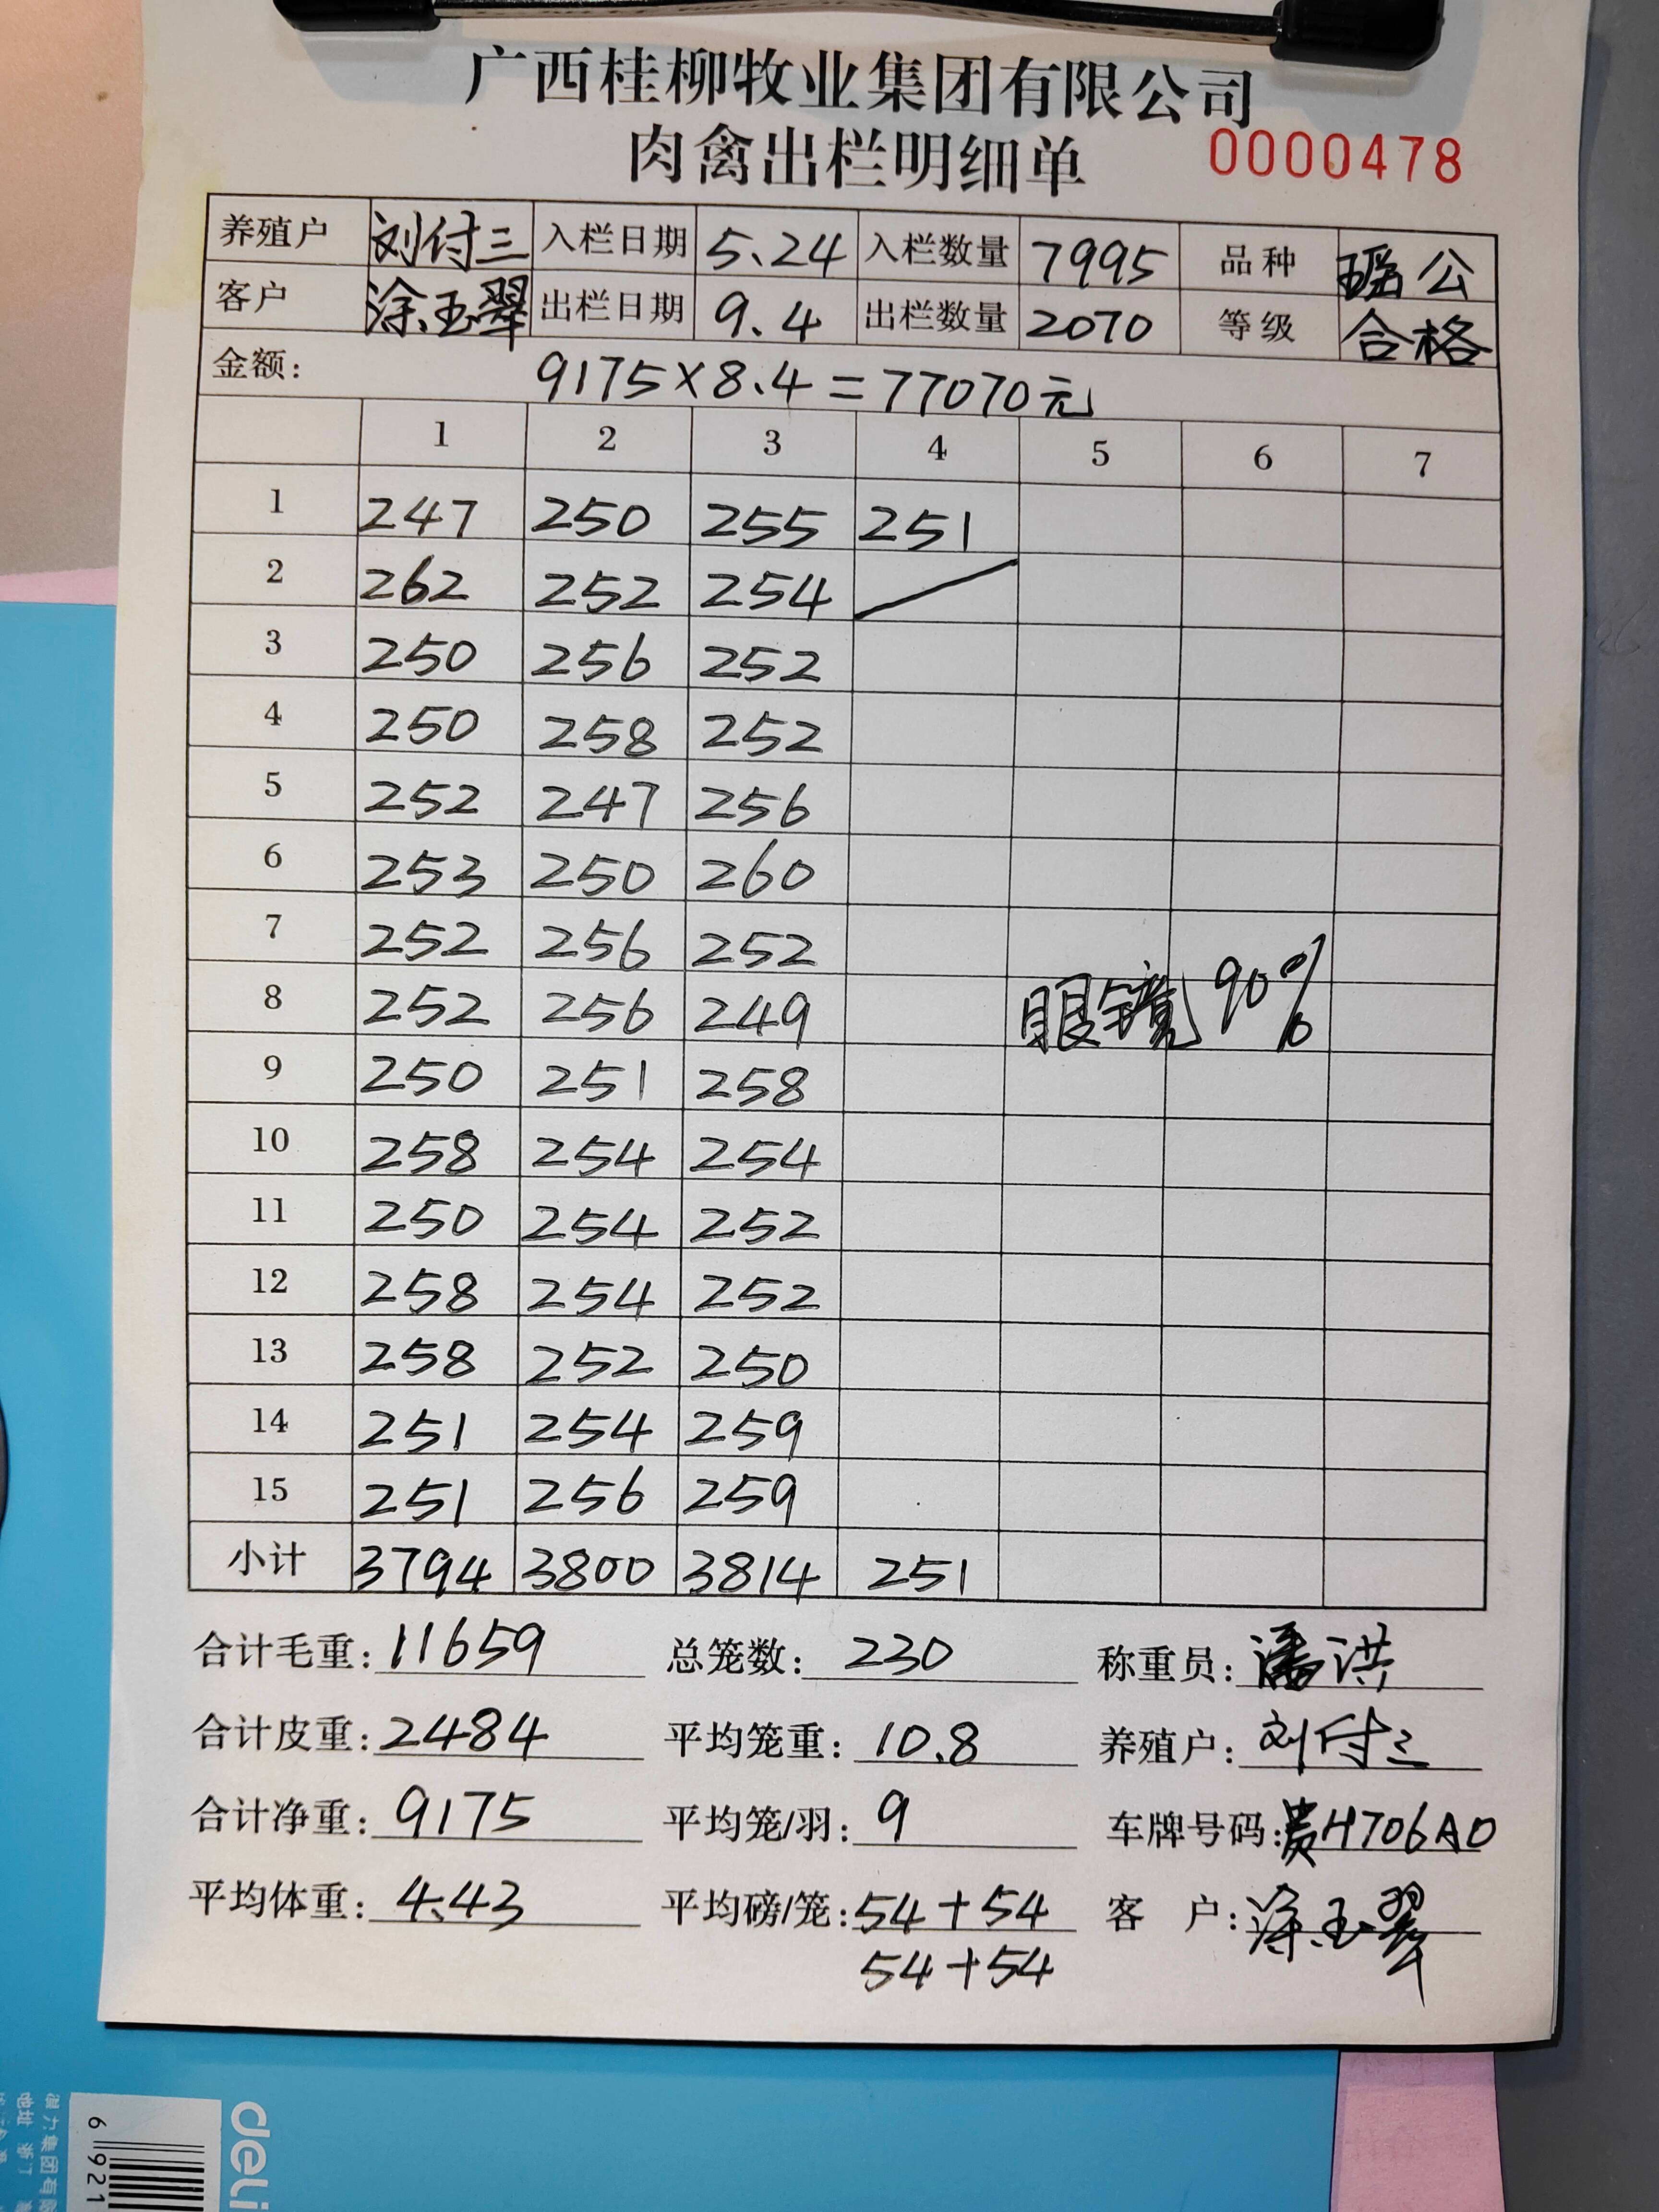 广西桂柳牧业集团有限公司
肉禽出栏明细单 0000478
养殖户 刘付三 入栏日期 5.24 入栏数量 7995 品种 瑶公
客户 涂玉翠 出栏日期 9.4 出栏数量 2070 等级 合格
金额: 9175×8.4=77070元
1 2 3 4 5 6 7
1 247 250 255 251
2 262 252 254
3 250 256 252
4 250 258 252
5 252 247 256
6 253 250 260
7 252 256 252
8 252 256 249 眼镜90%
9 250 251 258
10 258 254 254
11 250 254 252
12 258 254 252
13 258 252 250
14 251 254 259
15 251 256 259
小计 3794 3800 3814 251
合计毛重: 11659 总笼数: 230 称重员: 潘洪
合计皮重: 2484 平均笼重: 10.8 养殖户: 刘付三
合计净重: 9175 平均笼/羽: 9 车牌号码: 贵H706AD
平均体重: 4.43 平均磅/笼: 54+54 客 户: 涂玉翠
54+54
deli
6 921